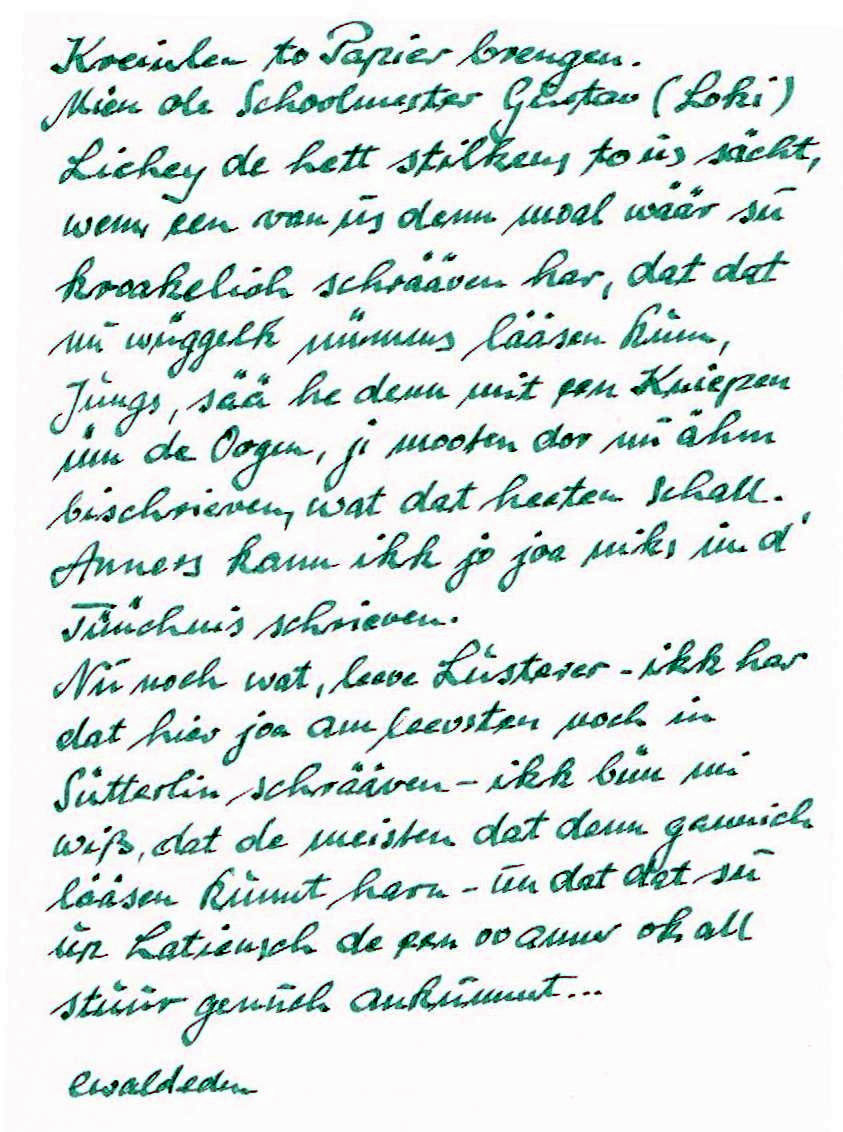 Kreiulen to Papier brengen.
Mien ole Schoolmester Güstav (Loki)
Lichey de hett stilkens to üs sächt,
wenn een van üs denn moal wäär sü
kroakelich schrääven har, dat dat
nü wüggelk nümms lääsen künn,
Jungs, sää he denn mit een Kniepen
üm de Oogen, ji mooten dor nü ähm
bischrieven, wat dat heeten schall.
Anners kann ikk jo joa niks in d'
Tüüchnis schrieven.
Nü noch wat, leeve Lüsterer - ikk har
dat hier joa am leevsten noch in
Sütterlin schrääven - ikk bün mi
wiß, dat de meisten dat denn gannich
lääsen künnt harn - ün dat dat sü
üp Latiensch de een oo anner ok all
stüür genüch ankümmt...
ewaldeden